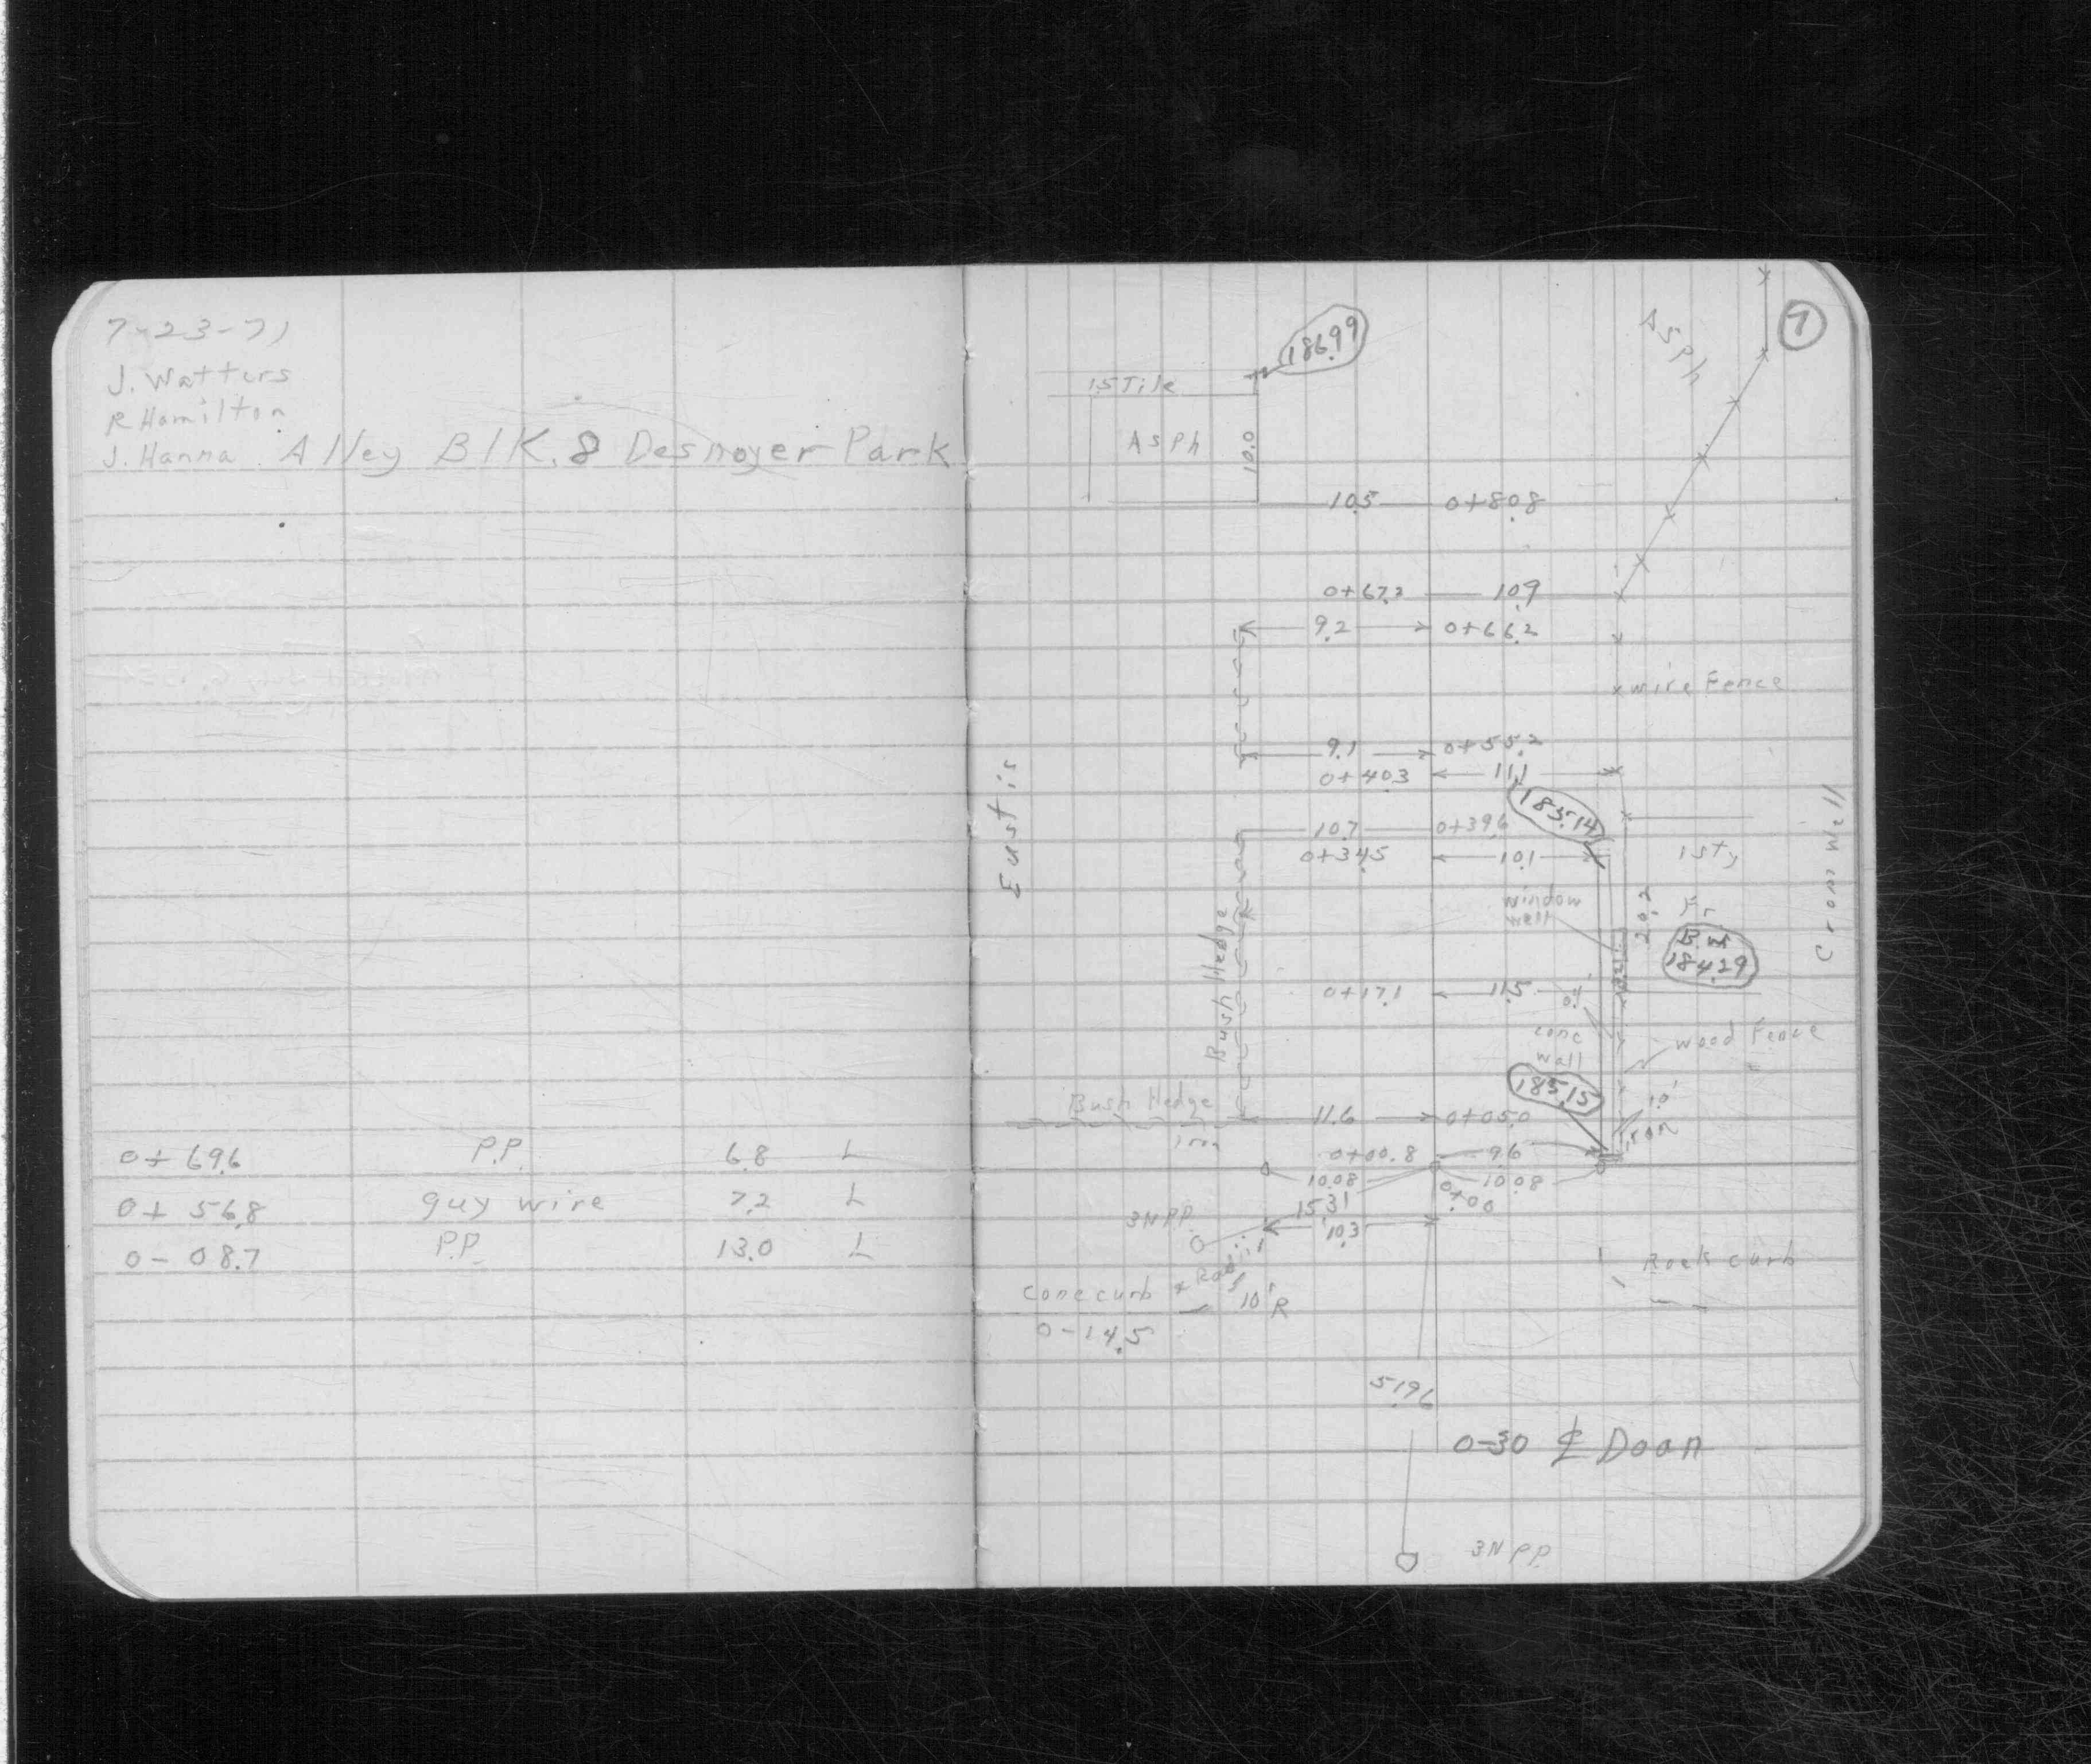 7-23-71
J. Watters
R Hamilton
J. Hanna Alley Blk. 8 Desnoyer Park
0+69.6 P.P. 6.8 L
0+56.8 guy wire 7.2 L
0-08.7 P.P. 13.0 L
7
186.99
Asph
1.5 Tile
Asph
10.0
10.5 0+80.8
0+67.2 10.9
9.2 0+66.2
wire Fence
9.1 0+55.2
0+40.3 11.1
183.14
10.7 0+39.6
0+34.5 10.1
1 sty
Fr
Eustis
Cromwell
window
well
20.2
B.M
184.29
Bush Hedge
0+17.1 11.5
conc
wall
wood Fence
183.15
Bush Hedge
11.6 0+05.0
1.0'
Iron
Iron
0+00.8 9.6
10.08 10.08
0+00
15.31
3N P.P.
10.3
Rock curb
conc curb
10' R
0-14.5
51.96
0-30 ℄ Doan
3N P.P.